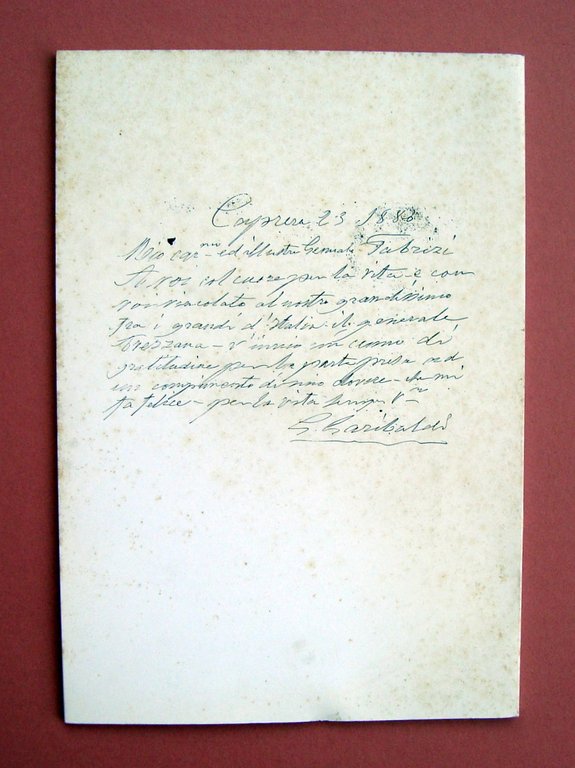 Caprera 23 1880
Mio egº ed illustre Generale Fabrizi
A voi col cuore per la vita e con
voi vincolato al nostro grandissimo
fra i grandi d'Italia il generale
Avezzana - v'invio un cenno di
gratitudine per la parte presa ad
un compimento di mio dovere - che mi
fa felice - per la vita sempre Vº
G. Garibaldi